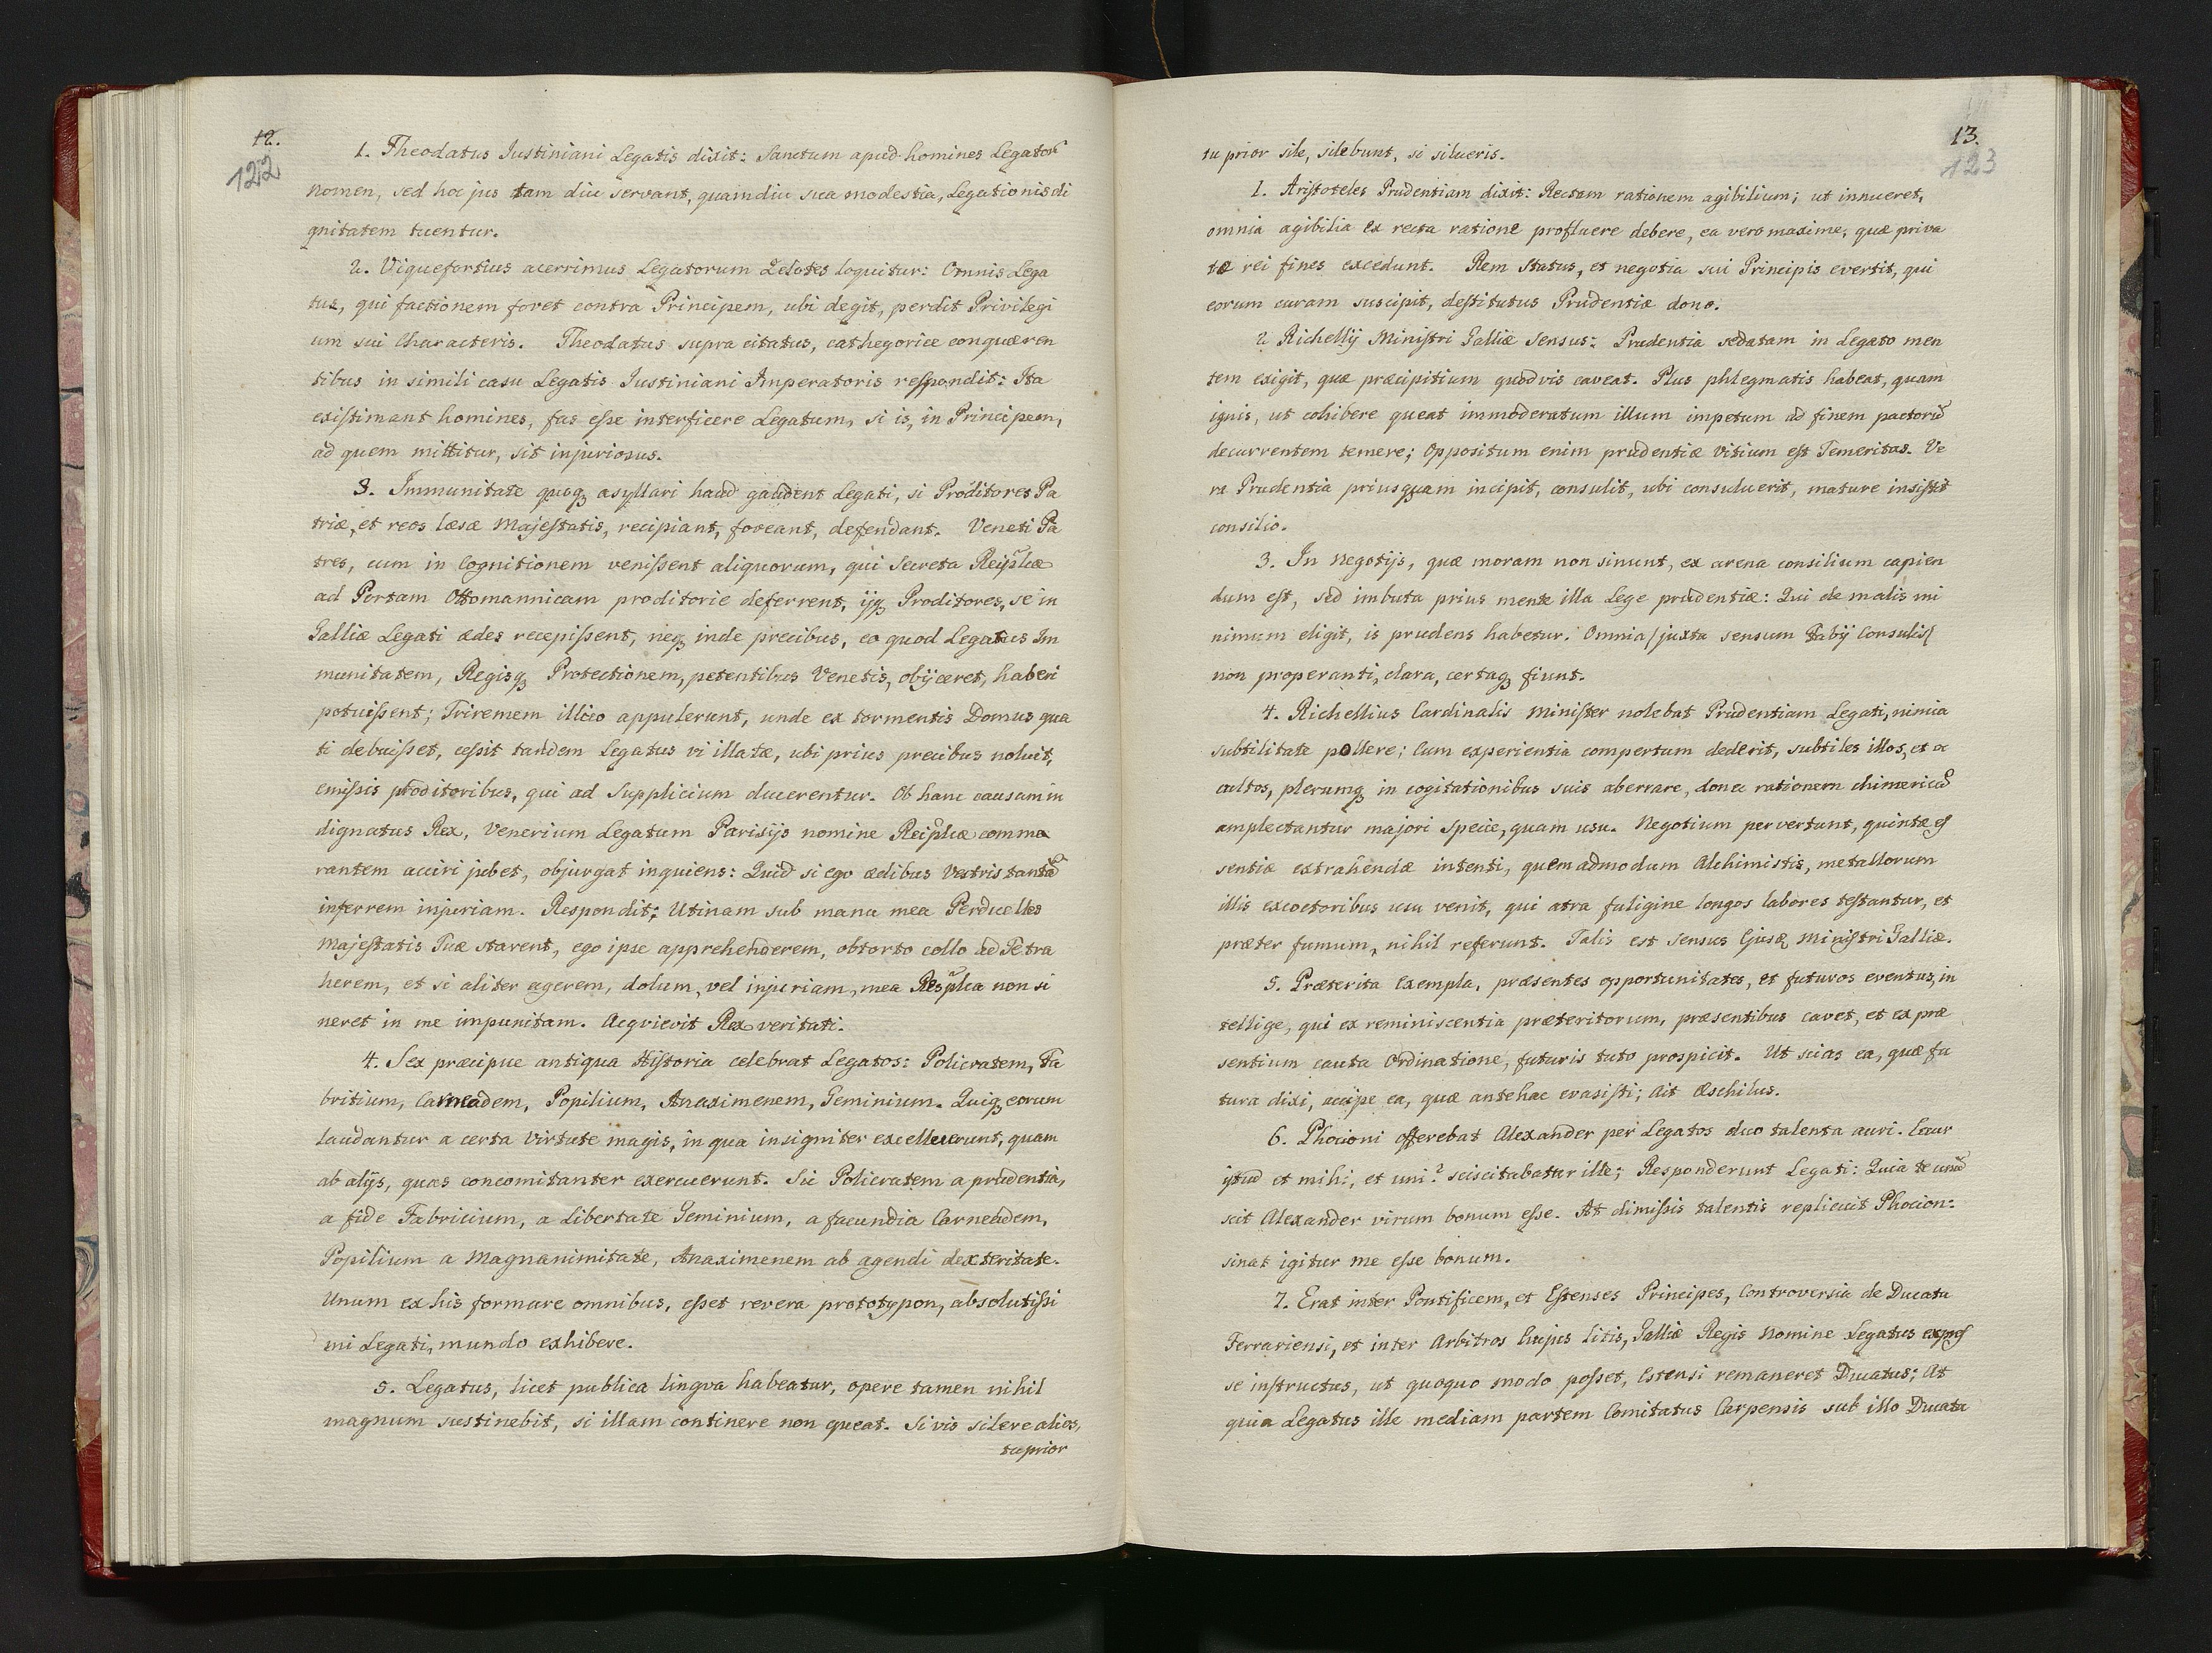 12.
122
1. Theodatus Justiniani Legatis dixit: Sanctum apud homines Legator̃
nomen, sed hoc jus tam diu servant, quamdiu sua modestia, Legationis di
gnitatem tuentur.
2. Viquefortius acerrimus Legatorum Zelotes loquitur: Omnis Lega
tus, qui factionem fovet contra Principem, ubi degit, perdit Privilegi
um sui Characteris. Theodatus supra citatus, cathegorice conquæren
tibus in simili casu Legatis Justiniani Imperatoris respondit: Ita
existimant homines, fas esse interficere Legatum, si is, in Principem,
ad quem mittitur, sit injuriosus.
3. Immunitate quoqꝫ asyllari haud gaudent Legati, si Proditores Pa
triæ, et reos læsæ Majestatis, recipiant, foveant, defendant. Veneti Pa
tres, cum in Cognitionem venissent aliquorum, qui Secreta Reip̃licæ
ad Portam Ottomannicam proditorie deferrent, ijqꝫ Proditores, se in
Galliæ Legati ædes recepissent, neqꝫ inde precibus, eo quod Legatus Im
munitatem, Regisqꝫ Protectionem, petentibus Venetis, obijceret, haberi
potuissent; Triremem illico appulerunt, unde ex tormentis Domus qua
ti debuisset, cessit tandem Legatus vi illatæ, ubi prius precibus noluit,
emissis proditoribus, qui ad Supplicium ducerentur. Ob hanc causam in
dignatus Rex, Venerium Legatum Parisijs nomine Reip̃licæ commo
rantem acciri jubet, objurgat inquiens: Quid si ego ædibus Vestris tantã
inferrem injuriam. Respondit: Utinam sub manu mea Perduelles
Majestatis Tuæ starent, ego ipse apprehenderem, obtorto collo ad Te tra
herem, et si aliter agerem, dolum, vel injuriam, mea Resp̃lica non si
neret in me impunitam. Acqvievit Rex veritati.
4. Sex præcipue antiqua Historia celebrat Legatos: Policratem, Fa
britium, Carneadem, Popilium, Anaximenem, Geminium. Quiqꝫ eorum
laudantur a certa Virtute magis, in qua insigniter excelluerunt, quam
ab alijs, quas concomitanter exercuerunt. Sic Policratem a prudentia,
a fide Fabricium, a Libertate Geminium, a facundia Carneadem,
Popilium a Magnanimitate, Anaximenem ab agendi dexteritate.
Unum ex his formare omnibus, esset revera prototypon, absolutissi
mi Legati, mundo exhibere.
5. Legatus, licet publica lingva habeatur, opere tamen nihil
magnum sustinebit, si illam continere non queat. Si vis silere alios,
tu prior
13.
123
tu prior sile, silebunt, si silueris.
1. Aristoteles Prudentiam dixit: Rectam rationem agibilium; ut innueret,
omnia agibilia ex recta ratione profluere debere, ea vero maxime, quæ priva
tæ rei fines excedunt. Rem Status, et negotia sui Principis evertit, qui
eorum curam suscipit, destitutus Prudentiæ dono.
2 Richellij Ministri Galliæ Sensus: Prudentia sedatam in Legato men
tem exigit, quæ præcipitium quodvis caveat. Plus phlegmatis habeat, quam
ignis, ut cohibere queat immoderatum illum impetum ad finem pactorũ
decurrentem temere; Oppositum enim prudentiæ Vitium est Temeritas. Ve
ra Prudentia priusquam incipit, consulit, ubi consuluerit, mature insistit
consilio.
3. In negotijs, quæ moram non sinunt, ex arena consilium capien
dum est, sed imbuta prius mente illa Lege prudentiæ: Qui de malis mi
nimum eligit, is prudens habetur. Omnia /juxta sensum Fabij Consulis/
non properanti, clara, certaqꝫ fiunt.
4. Richellius Cardinalis Minister nolebat Prudentiam Legati, nimia
subtilitate pollere; Cum experientia compertum dederit, subtiles illos, et oc
cultos, plerumqꝫ in cogitationibus suis aberrare, donec rationem chimericã
amplectantur majori specie, quam usu. Negotium pervertunt, quintæ es
sentiæ extrahendæ intenti, quemadmodum Alchimistis, metallorum
illis excoctoribus usu venit, qui atra fuligine longos labores testantur, et
præter fumum, nihil referunt. Talis est sensus Ejusdē Ministri Galliæ.
5. Præterita Exempla, præsentes opportunitates, et futuros eventus, in
tellige, qui ex reminiscentia præteritorum, præsentibus cavet, et ex præ
sentium cauta Ordinatione, futuris tuto prospicit. Ut scias ea, quæ fu
tura dixi, accipe ea, quæ antehac evasisti; Ait Æschilus.
6. Phocioni offerebat Alexander per Legatos duo talenta auri. Ecur
istud et mihi, et uni? sciscitabatur ille; Responderunt Legati: Quia te unũ
scit Alexander virum bonum esse. At dimissis talentis replicuit Phocion:
sinat igitur me esse bonum.
7. Erat inter Pontificem, et Estenses Principes, Controversia de Ducatu
Ferrariensi, et inter Arbitros hujus litis, Galliæ Regis Nomine Legatus expres
se instructus, ut quoquo modo posset, Estensi remaneret Ducatus; At
quia Legatus ille mediam partem Comitatus Carpensis sub illo Ducatu